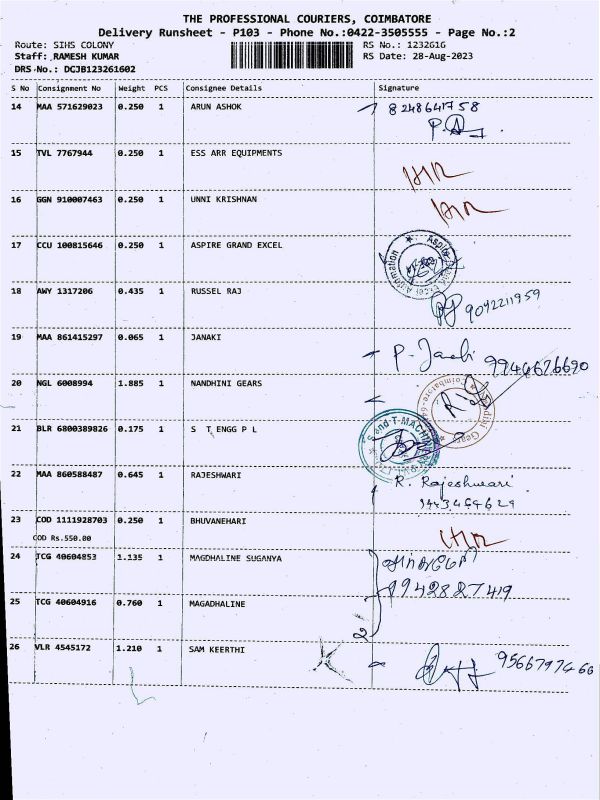 THE PROFESSIONAL COURIERS, COIMBATORE
Delivery Runsheet - P103 - Phone No.:0422-3505555 - Page No.:2
Route: SIHS COLONY
RS No.: 1232G1G
Staff: RAMESH KUMAR
RS Date: 28-Aug-2023
DRS No.: DCJB123261602
S No Consignment No Weight PCS Consignee Details Signature
14 MAA 571629023 0.250 1 ARUN ASHOK 8248641758
15 TVL 7767944 0.250 1 ESS ARR EQUIPMENTS
16 GGN 910007463 0.250 1 UNNI KRISHNAN
17 CCU 100815646 0.250 1 ASPIRE GRAND EXCEL
18 AWY 1317206 0.435 1 RUSSEL RAJ 9042211959
19 MAA 861415297 0.065 1 JANAKI
9944676690
20 NGL 6008994 1.885 1 NANDHINI GEARS
21 BLR 6800389826 0.175 1 S T ENGG P L
22 MAA 860588487 0.645 1 RAJESHWARI R. Rajeshwari
23 COD 1111928703 0.250 1 BHUVANEHARI
COD Rs.550.00
24 TCG 40604853 1.135 1 MAGDHALINE SUGANYA
9942887419
25 TCG 40604916 0.760 1 MAGADHALINE
26 VLR 4545172 1.210 1 SAM KEERTHI